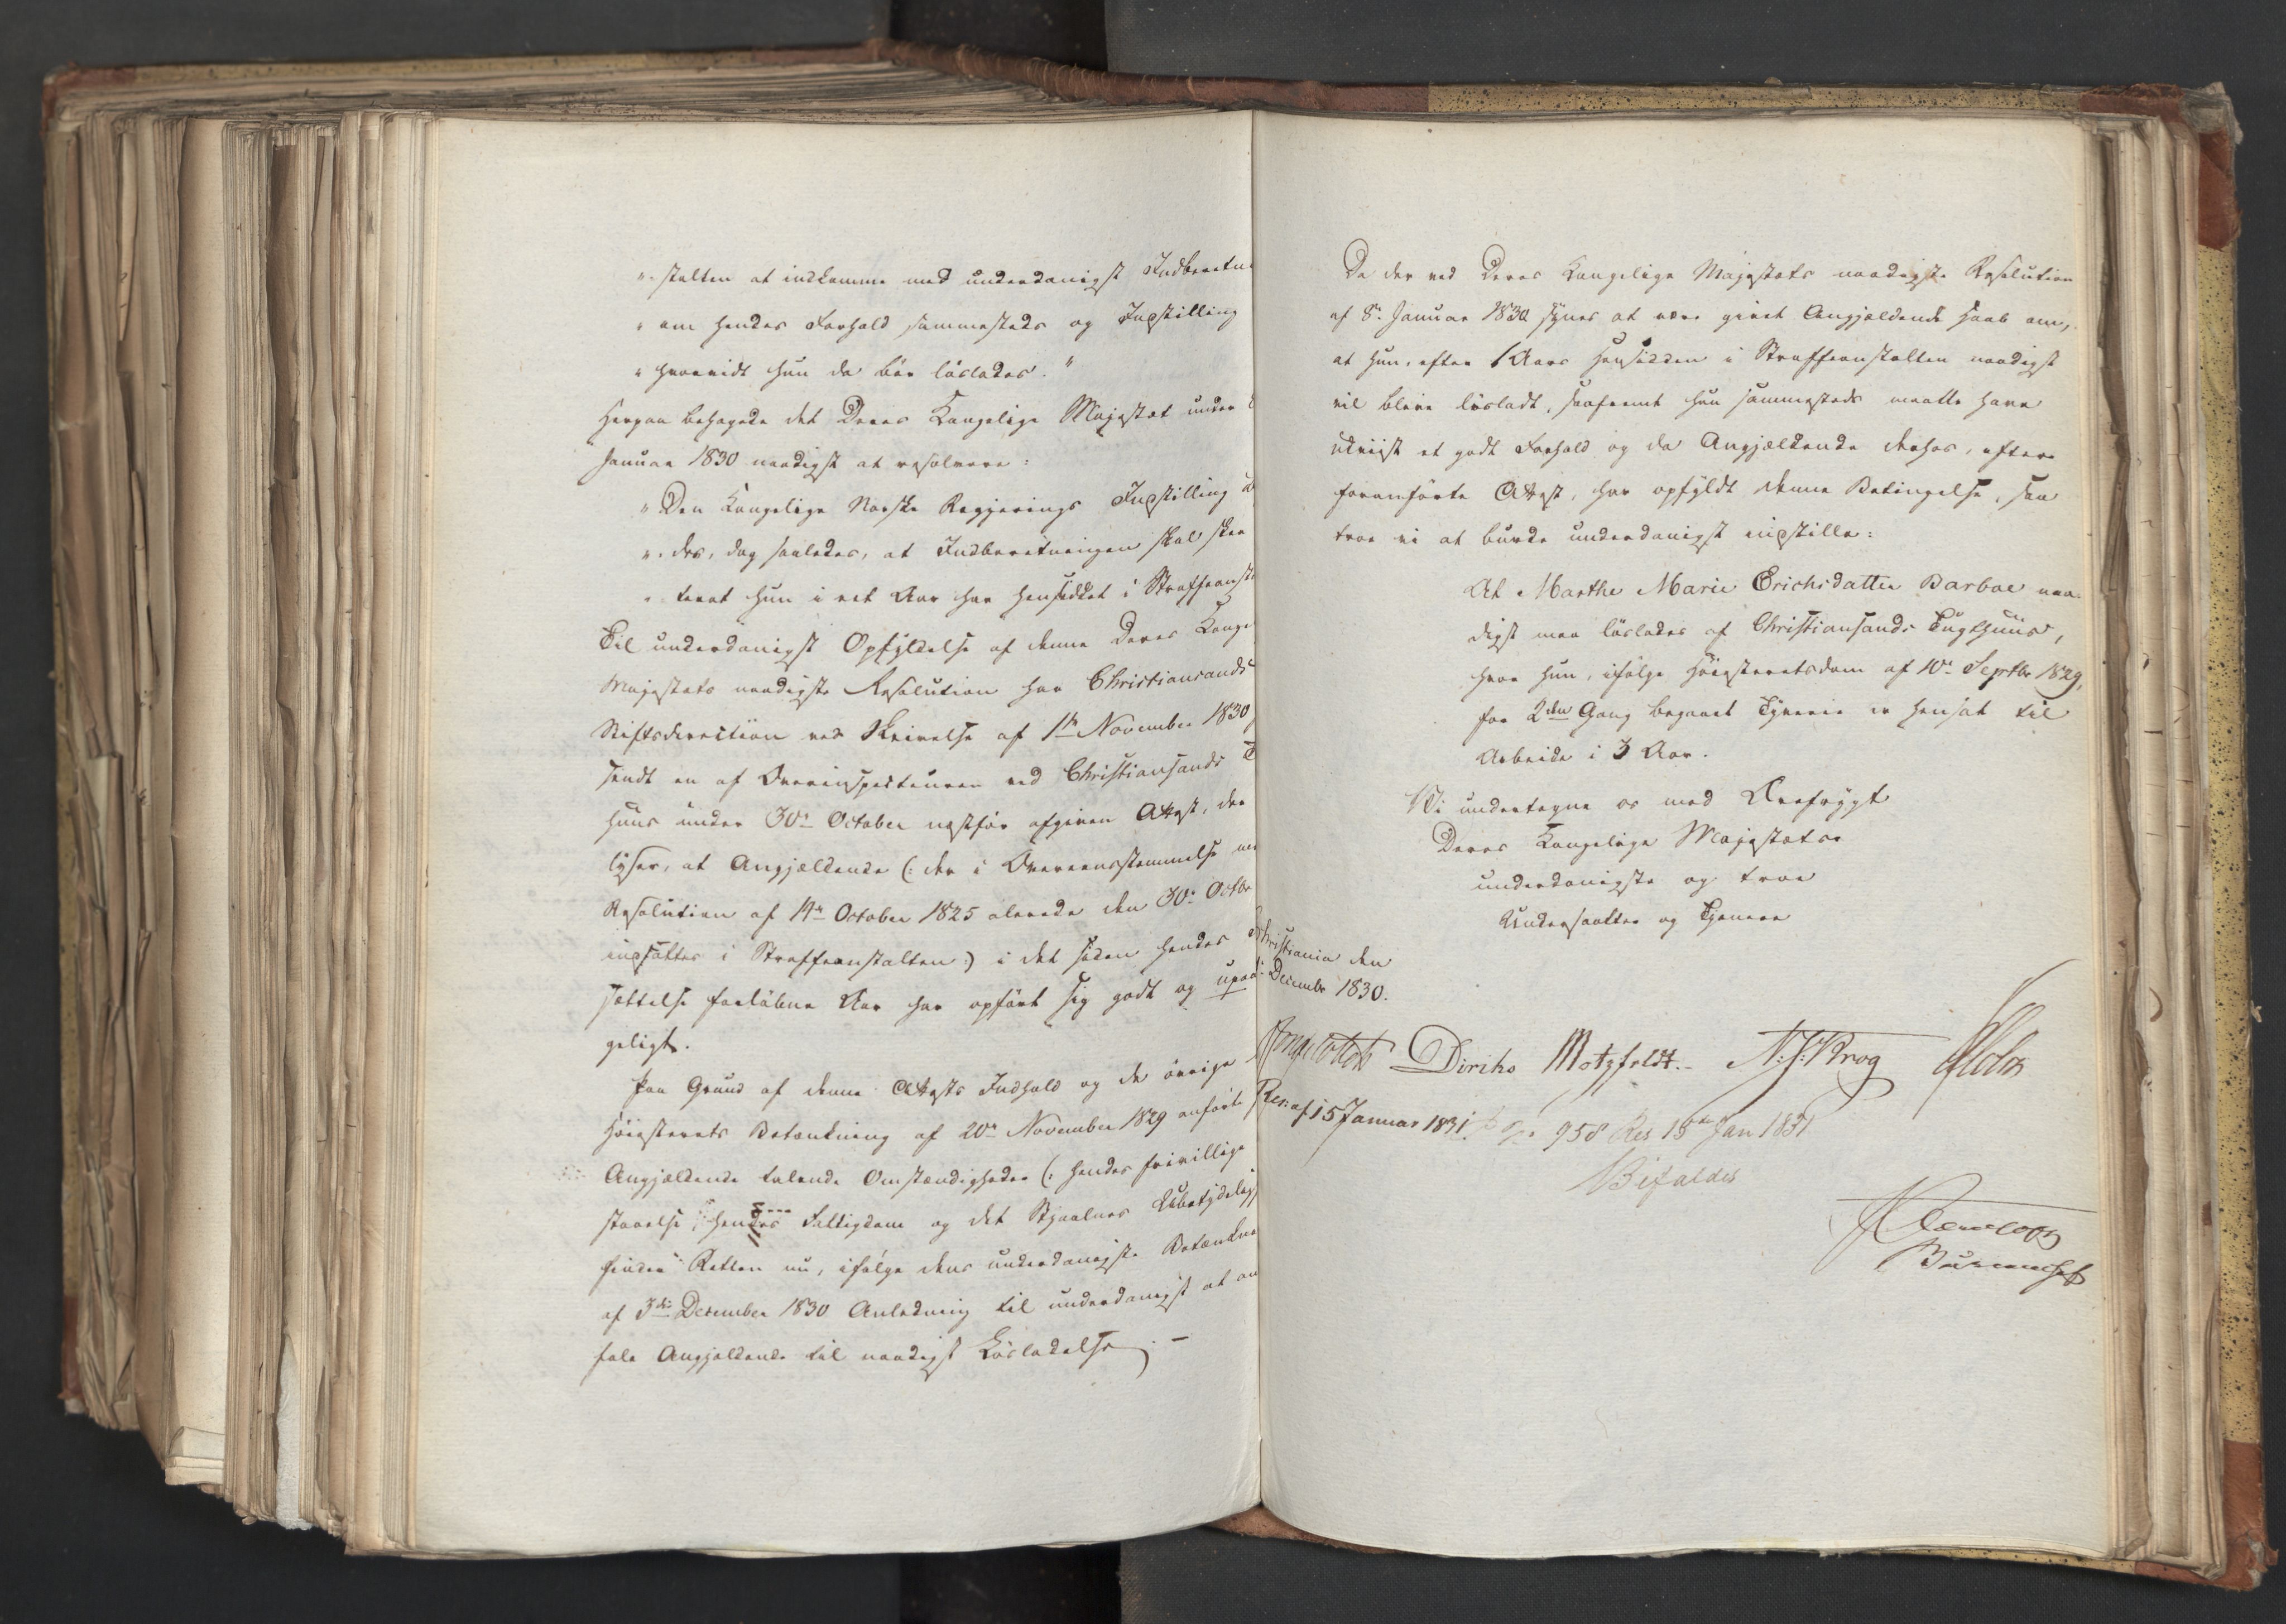 "stalten at indkomme med underdanigst Indberetn
" om hendes Forhold sammesteds og Indstilling
" hvorvidt hun da bör löslades."
Herpaa behagede det Deres Kongelige Majestæt under
Januar 1830 naadigst at resolvere:
" Den Kongelige Norske Regjerings Indstilling
" des, dog saaledes, at Indberetningen skal skee
" terat hun i eet Aar har hensiddet i Straffeanst
Til underdanigst Opfyldelse af denne Deres Konge
Majestæts naadigste Resolution har Christiansands
Stiftsdirection ved Skrivelse af 1ste November 1830
sendt en af Overinspecteuren ved Christiansands T
huus under 30te October næstfør afgiven Attest, der
lyser, at Angjældende (: der i Overeensstemmelse me
Resolution af 14de October 1825 allerede den 30te Octbr
indsattes i Straffeanstalten:) i det siden hendes
sættelse forløbne Aar har opført sig godt og upaa
geligt.
Paa Grund af denne Attests Indhold og de øvrige
Høiesterets Betænkning af 20de November 1829 anførte
Angjældende talende Omstændigheder (: hendes frivillige
staaelse, hendes Fattigdom og det Stjaalnes Ubetydelig
finder Retten nu, ifølge dens underdanigste Betænkn
af 3die December 1830 Anledning til underdanigst at an
fale Angjældende til naadigst Løsladelse. -
Da der ved Deres Kongelige Majestæts naadigste Resolution
af 8de Januar 1830 synes at være givet Angjældende Haab om,
at hun, efter 1 Aars Hensidden i Straffeanstalten naadigst
vil blive løsladt, saafremt hun sammesteds maatte have
udviist et godt Forhold og da Angjældende derhos, efter
foranførte Attest, har opfyldt denne Betingelse, saa
troe vi at burde underdanigst indstille:
At Marthe Marie Erichsdatter Barboe naa-
digst maa løslades af Christiansands Tugthuus,
hvor hun, ifølge Høiesteretsdom af 10de Septbr 1829,
for 2den Gang begaaet Tyverie er hensat til
Arbeide i 3 Aar.
Vi undertegne os med Ærefrygt
Deres Kongelige Majestæts
underdanigste og troe
Undersaatter og Tjenere
Christiania den
December 1830.
Collett Diriks Motzfeldt. N. J. Krog Holst
Res: af 15 Januar 1831. 958 Res 15de Jan 1831
Bifaldes